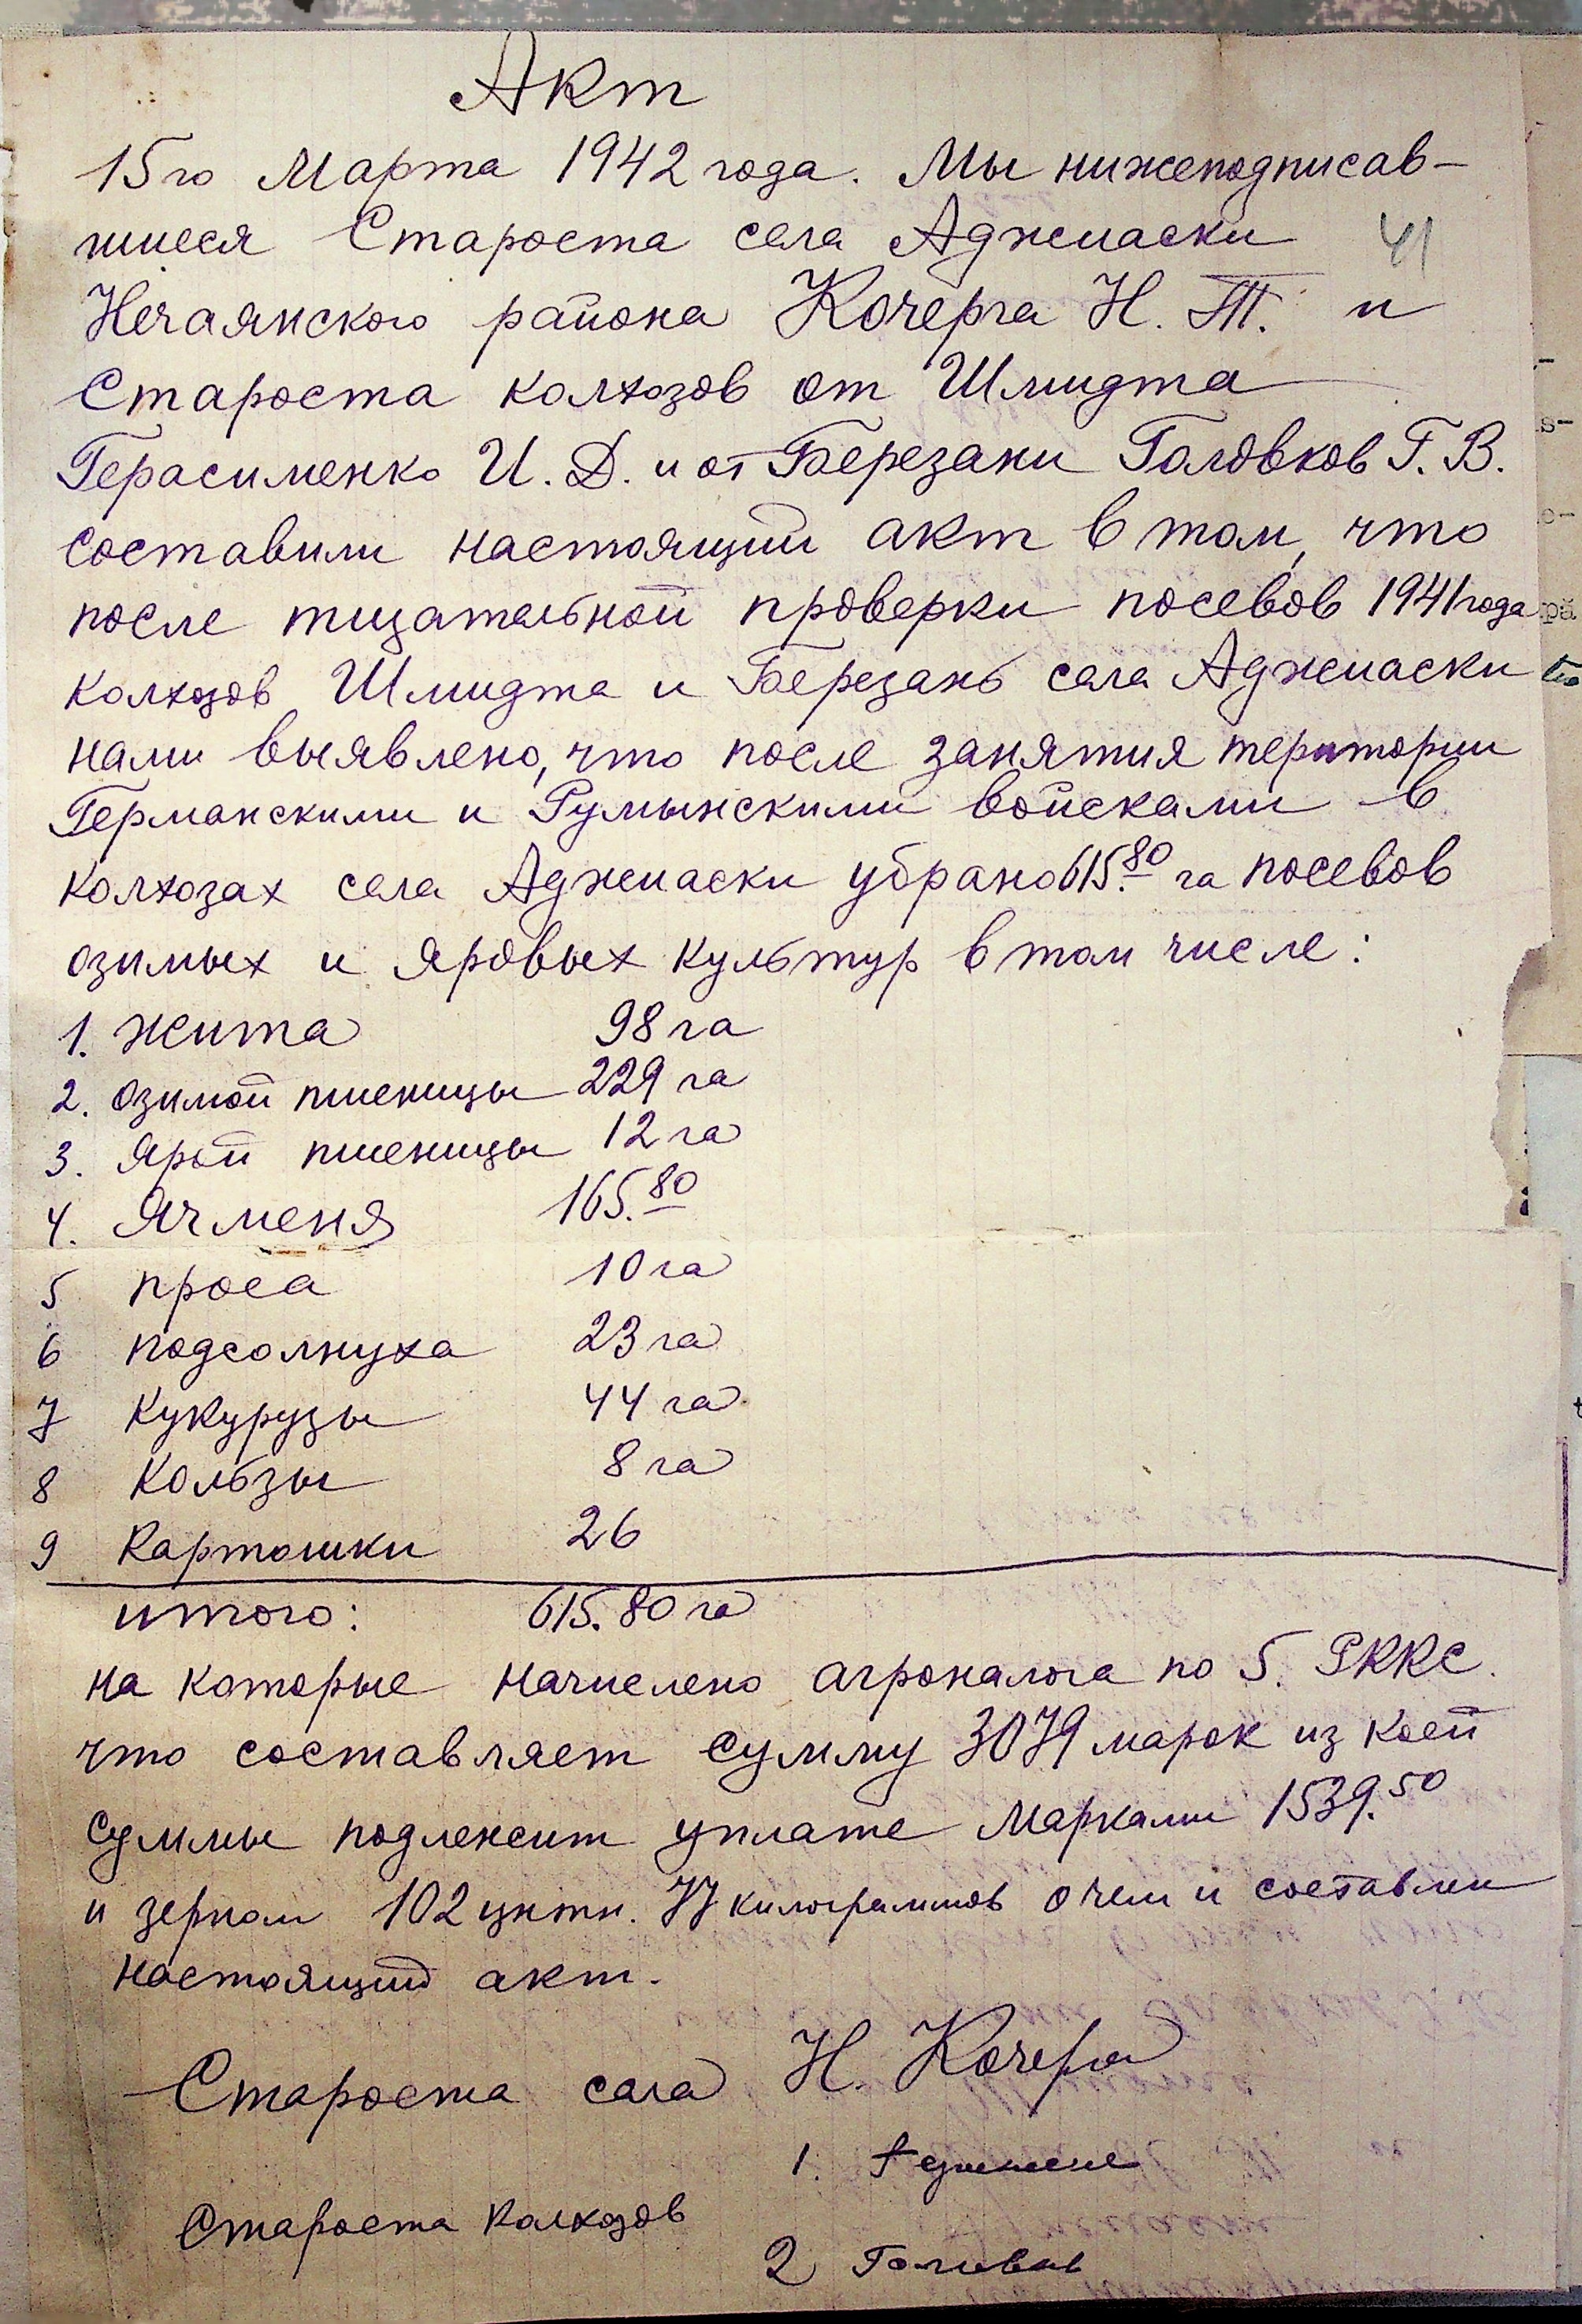 Акт
15го Марта 1942 года. Мы нижеподписав-
шиеся Староста села Аджиаски
41
Нечаянского района Кочерга Н. Т. и
Староста колхозов от Шмидта
Герасименко И. Д. и от Березани Головков Г. В.
составили настоящий акт в том, что
после тщательной проверки посевов 1941 года
колхозов Шмидта и Березань села Аджиаски
нами выявлено, что после занятия територии
Германскими и Румынскими войсками в
колхозах села Аджиаски убрано 615.80 га посевов
озимых и яровых культур в том числе:
1. жита 98 га
2. озимой пшеницы 229 га
3. Ярой пшеницы 12 га
4. Ячменя 165.80
5 проса 10 га
6 подсолнуха 23 га
7 Кукурузы 44 га
8 Кользы 8 га
9 Картошки 26
итого: 615.80 га
на которые начислено агроналога по 5. РККС.
что составляет сумму 3079 марок из коей
суммы подлежит уплате марками 1539.50
и зерном 102 цнтн. 77 килограммов о чем и составлен
настоящий акт.
Староста села Н. Кочерга
1.
Староста колхозов
2 Головков